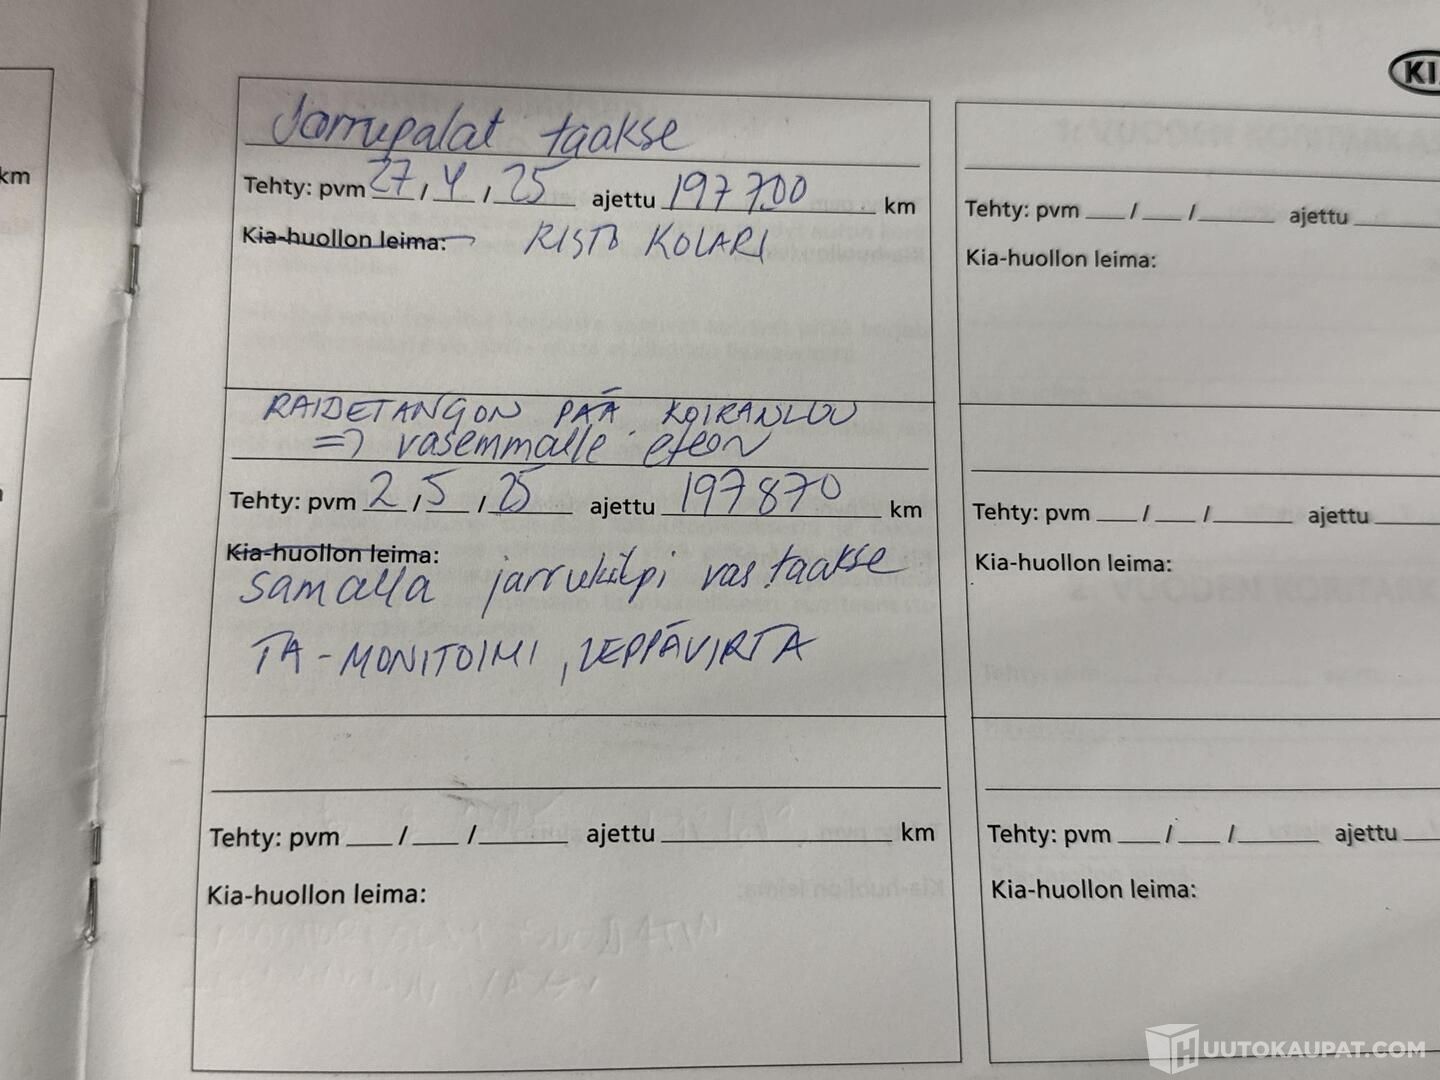 km
KI
Jarrupalat taakse
Tehty: pvm 27 / 4 / 25 ajettu 197700 km
Kia-huollon leima: RISTO KOLARI
RAIDETANGON PÄÄ KOIRANLUU
=> vasemmalle eteen
Tehty: pvm 2 / 5 / 25 ajettu 197870 km
Kia-huollon leima:
samalla jarrukilpi vas taakse
TA-MONITOIMI, LEPPÄVIRTA
Tehty: pvm ___ / ___ / ___ ajettu ___ km
Kia-huollon leima:
Tehty: pvm ___ / ___ / ___ ajettu ___
Kia-huollon leima:
Tehty: pvm ___ / ___ / ___ ajettu ___
Kia-huollon leima:
Tehty: pvm ___ / ___ / ___ ajettu ___
Kia-huollon leima:
HUUTOKAUPAT.COM